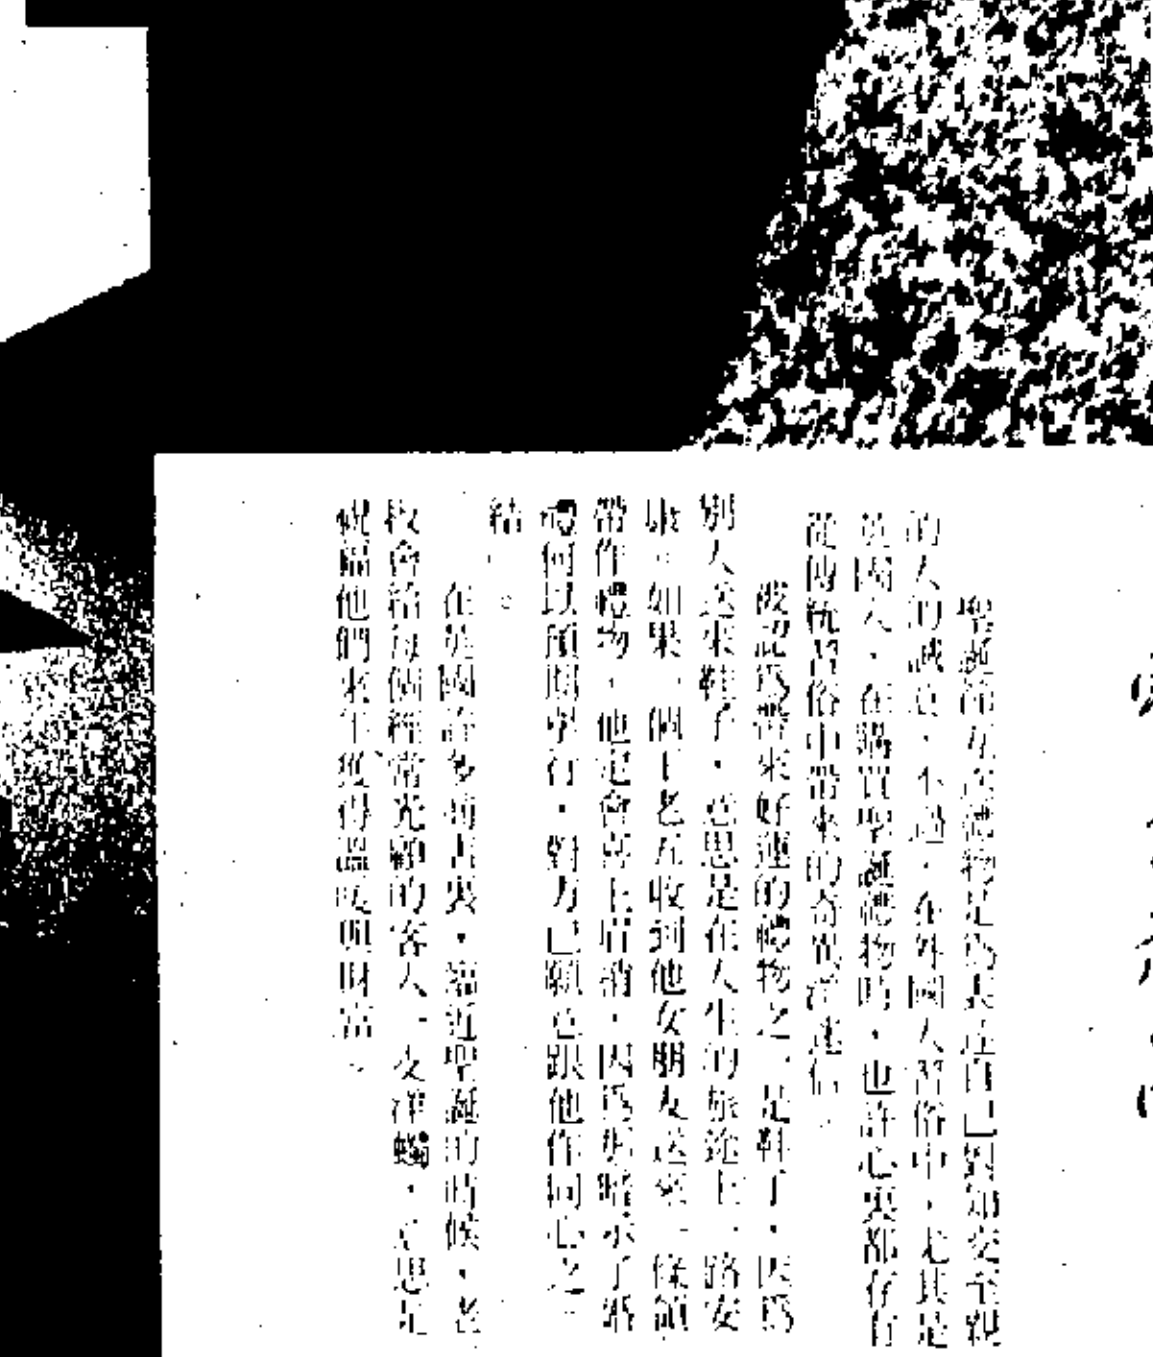 聖誕節互送禮物是為表達自己對知交至親
的人的誠意，不過，在外國人習俗中，尤其是
英國人，在購買聖誕禮物時，也許心裏都存有
從傳統習俗中帶來的奇異洋迷信。
被認為帶來好運的禮物之一是鞋子，因為
別人送來鞋子，意思是在人生的旅途上一路安
康。如果一個王老五收到他女朋友送來一條領
帶作禮物，他定會喜上眉梢，因為這暗示了婚
禮可以預期舉行，對方已願意跟他作同心之
結。
在英國許多酒吧裏，逼近聖誕的時候，老
板會給每個經常光顧的客人一支洋蠟，意思是
祝福他們來年獲得溫暖與財富。